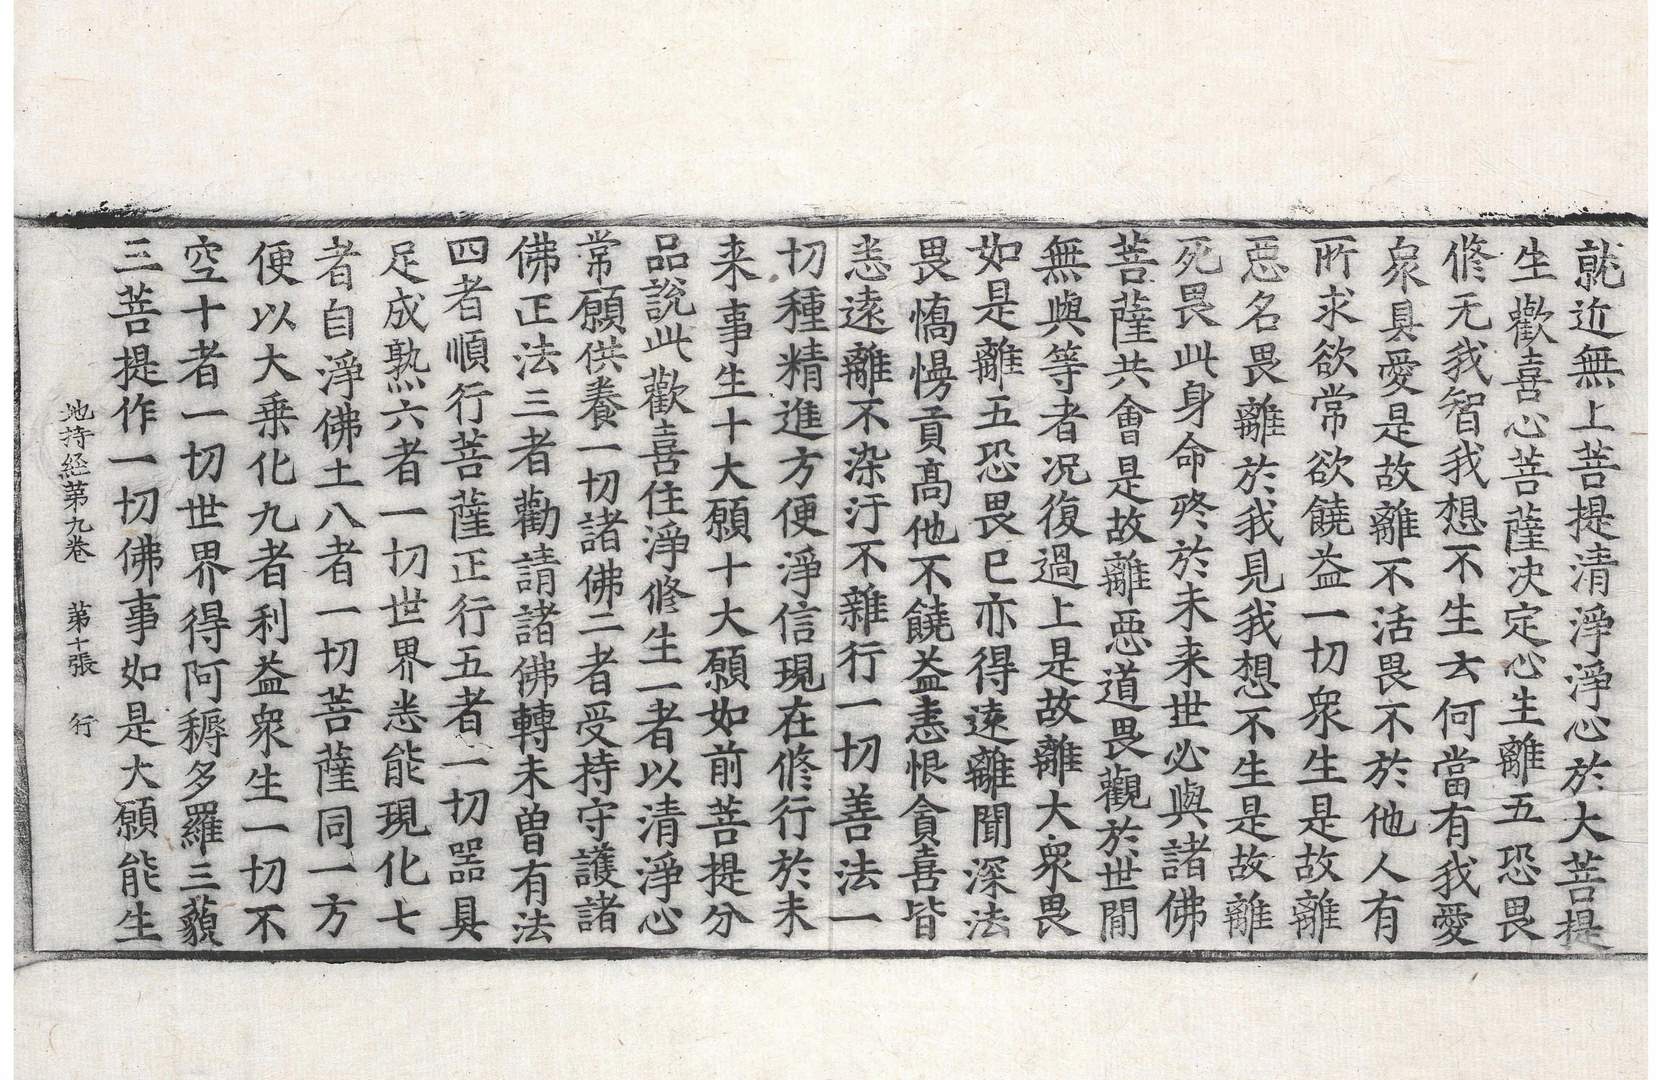 就近無上菩提清淨淨心於大菩提
生歡喜心菩薩決定心生離五恐畏
修无我智我想不生去何當有我愛
衆具愛是故離不活畏不於他人有
所求欲常欲饒益一切衆生是故離
惡名畏離於我見我想不生是故離
死畏此身命終於未来世必與諸佛
菩薩共會是故離惡道畏觀於世間
無與等者况復過上是故離大衆畏
如是離五恐畏已亦得遠離聞深法
畏憍慢貢高他不饒益恚恨貪喜皆
悉遠離不染汙不雜行一切善法一
切種精進方便淨信現在修行於未
来事生十大願十大願如前菩提分
品說此歡喜住淨修生一者以清淨心
常願供養一切諸佛二者受持守護諸
佛正法三者勸請諸佛轉未曾有法
四者順行菩薩正行五者一切器具
足成熟六者一切世界悉能現化七
者自淨佛土八者一切菩薩同一方
便以大乗化九者利益衆生一切不
空十者一切世界得阿耨多羅三藐
三菩提作一切佛事如是大願能生
地持経第九卷 第十張 行